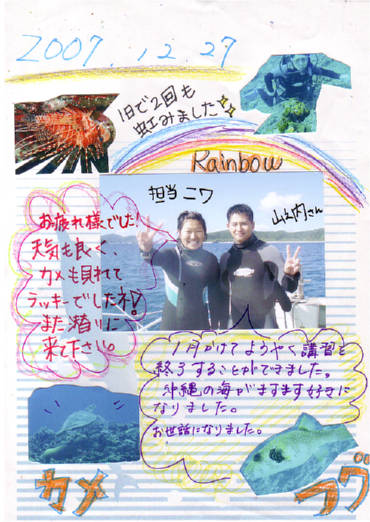 2007.12.27
1日で2回も
虹みました
Rainbow
担当ニワ
山之内さん
お疲れ様でした!
天気も良く、
カメも見れて
ラッキーでしたネ!
また潜りに
来て下さい。
1月かけてようやく講習を
終了することができました。
沖縄の海がますます好きに
なりました。
お世話になりました。
カメ
フグ